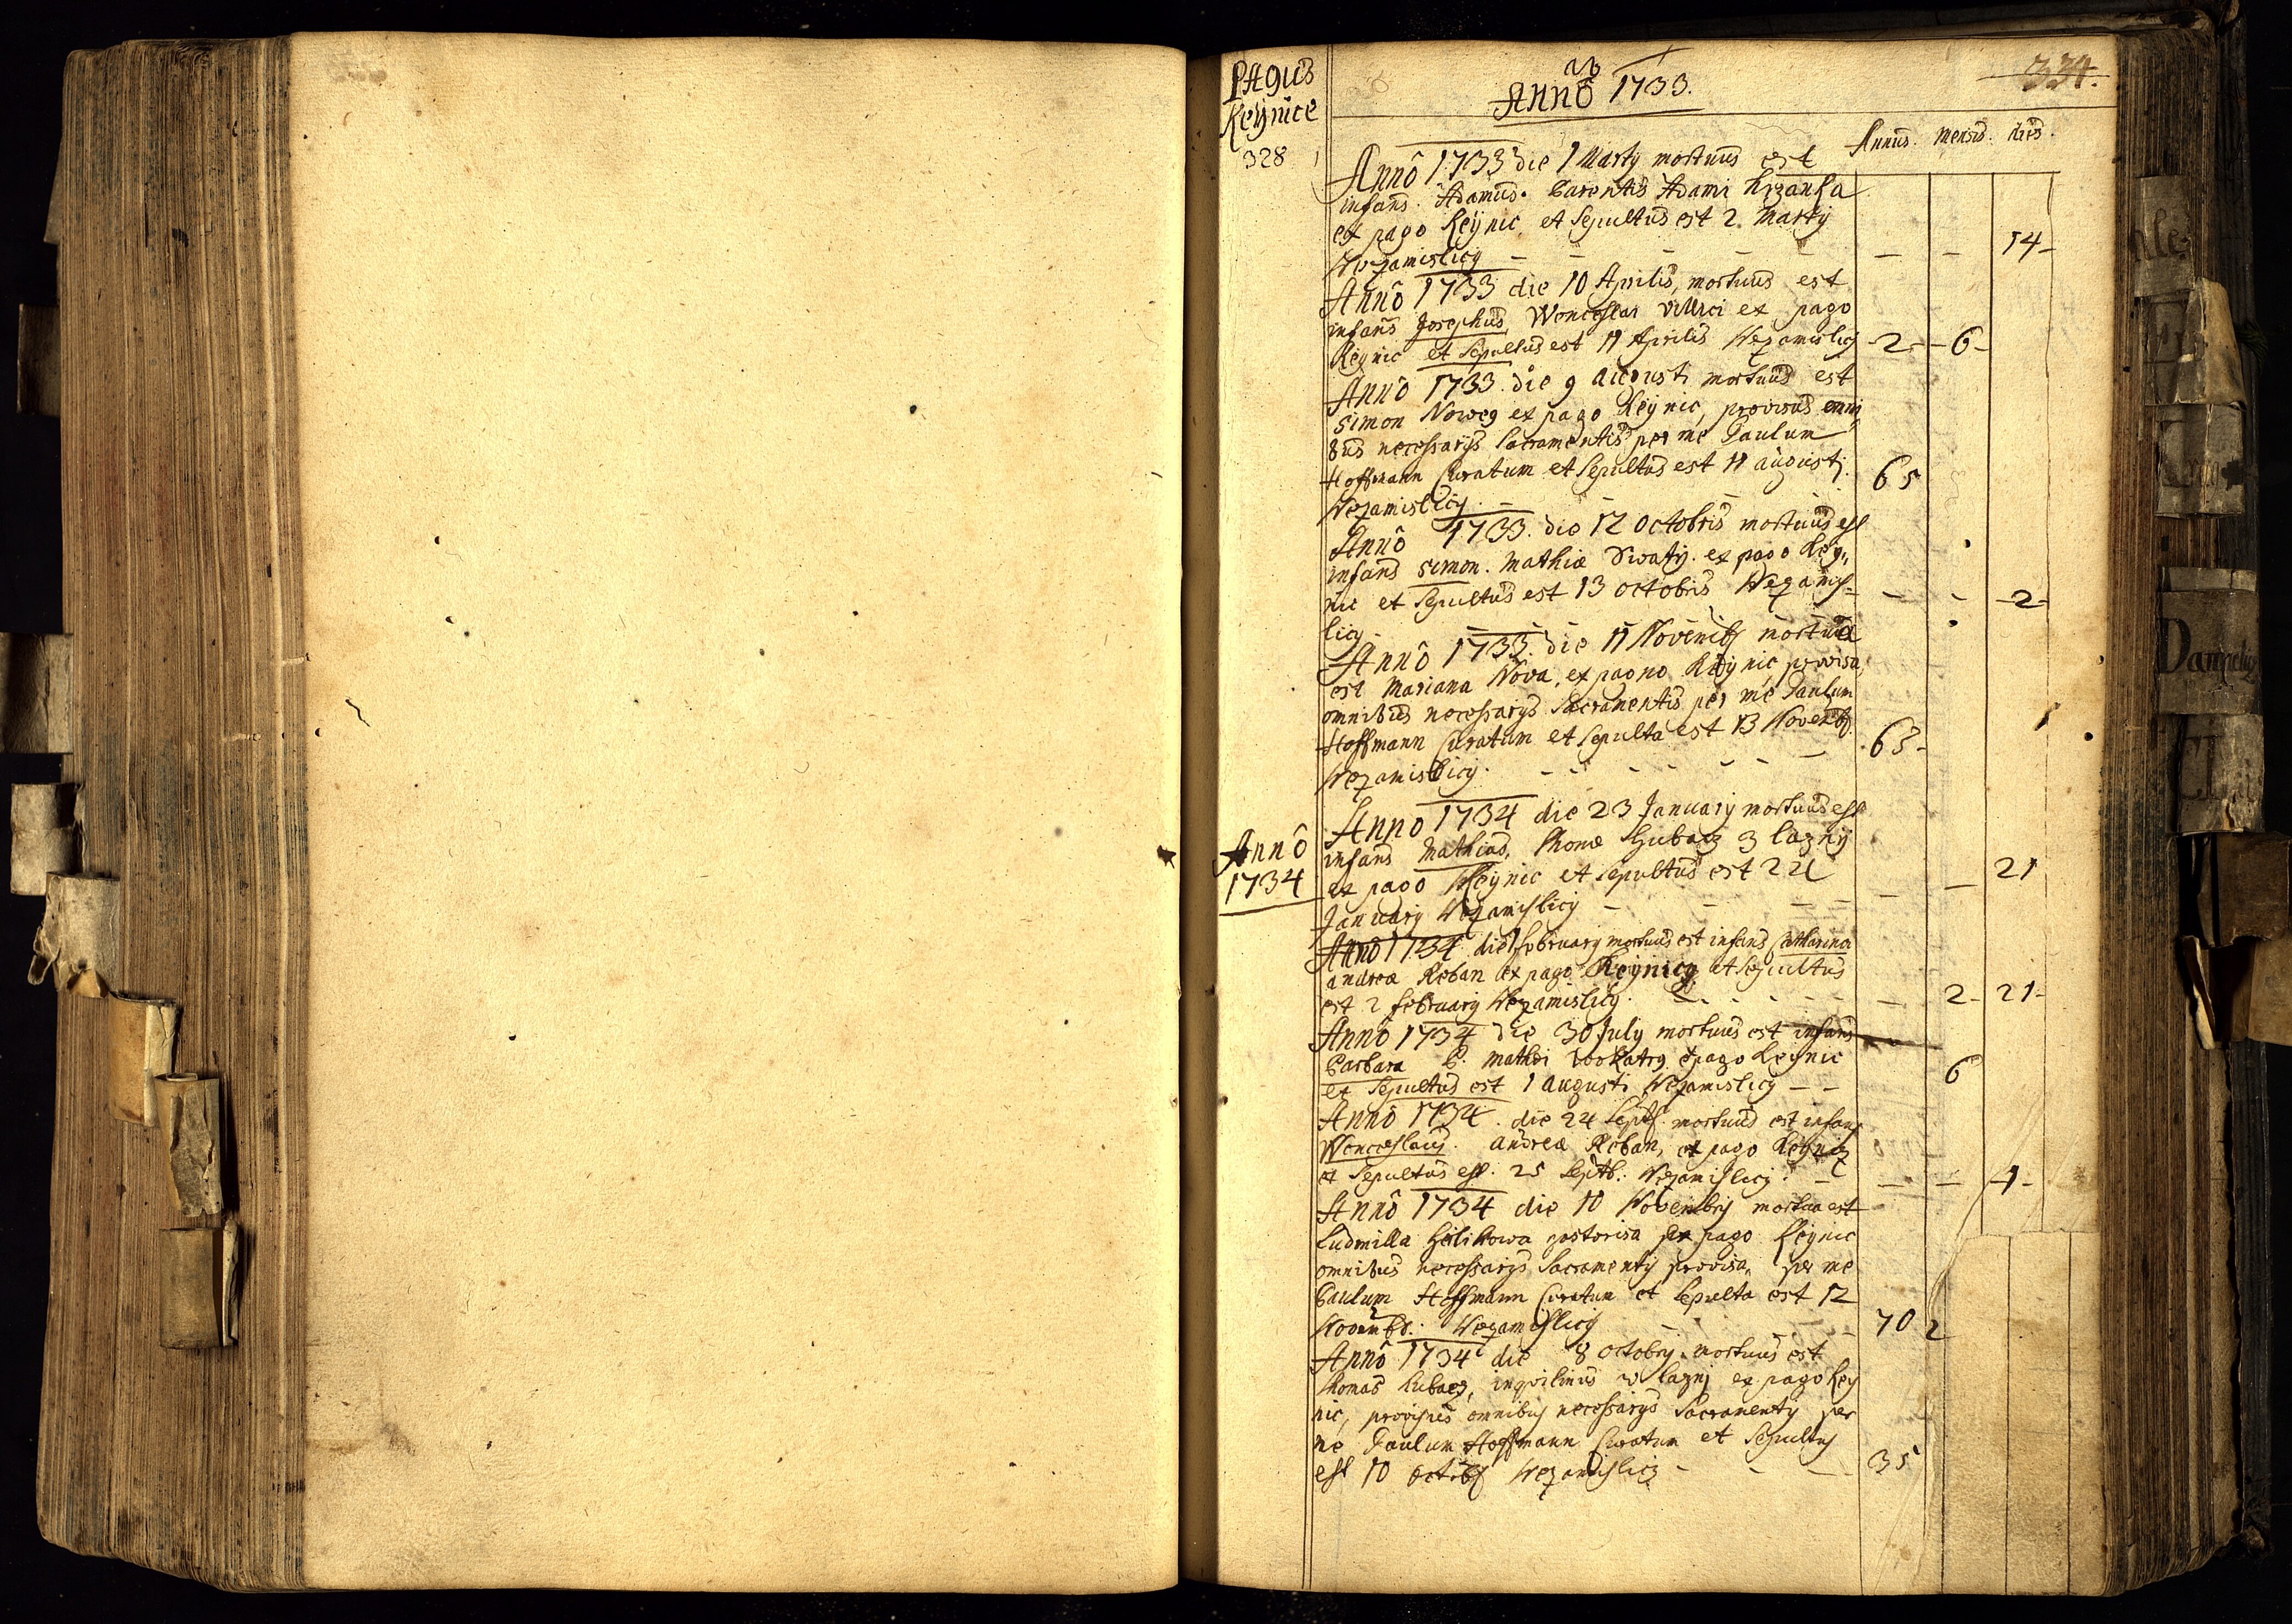 PAgus
Keynice
328
ab
Annô 1733.
334.
Annus. Mensis. dies.
Annô 1733 die 1 Marty mortuus est
infans. Adamus. Parentis Adami
ex pago Keynic, et Sepultus est 2. Marty
Wezamislicy — — — — — — 14-
Annô 1733 die 10 Aprilis, mortuus est
infans Josephus, Wenceslai villici ex pago
Keynic et Sepultus est 11 Aprilis Wezamislicy -2- -6-
Annô 1733. die 9 augusti mortuus est
Simon Noweg ex pago Keynic, provisus omni
bus necessarys Sacramentis per me Paulum
Hoffmann Curatum et Sepultus est 11 augusti. 65
Wezamislicy. —
Annô 1733. die 12 octobris mortuus est
infans Simon. Mathiæ Swaty. ex pago Key,,
nic et Sepultus est 13 octobris Wezamis= — - -2-
licy — — — —
Annô 1733. die 11 Novemb mortua
est Mariana Nova, ex pagno Keynic, provisa
omnibus necessarys Sacramentis per me Paulum
Hoffmann Curatum et Sepulta est 13 Novemb. 63-
Wezamislicy. — — — — — — —
Annô
1734
Anno 1734 die 23 January mortuus est
infans Mathias, Thomæ 3 lazny
ex pago Keynic et Sepultus est 24 — — 21
January Wezamislicy — — — —
Annô 1734. die 1 february mortuus est infans Catharina
andreæ Reban ex pago Keynicz et Sepultus
est 2 february Wezamislicy. — — 2- 21-
Annô 1734 die 30 July mortuus est infans
Barbara P. Mathei ex pago Keynic 6
et Sepultus est 1 augusti Wezamislicy — —
Annô 1734. die 24 Septb. mortuus est infans
Wenceslaus. andreæ Reban, ex pago Keynicz
et Sepultus est. 25 Septb: Wezamislicy. — — — -1-
Annô 1734 die 10 Novembrÿ mortua est
Ludmilla ex pago Keynic
omnibus necessarys Sacramentÿ provisa, per me
Paulum Hoffmann Curatum et Sepulta est 12
Novembr: Wezamislicy — — — 70 2
Annô 1734 die 8 octobrÿ. mortuus est
Thomas inquilinus w lazni ex pago Key
nic, provisus omnibus necessarys Sacramentÿ per
me Paulum Hoffmann Curatum et Sepultus
est 10 octob Wezamislicz - - — 35